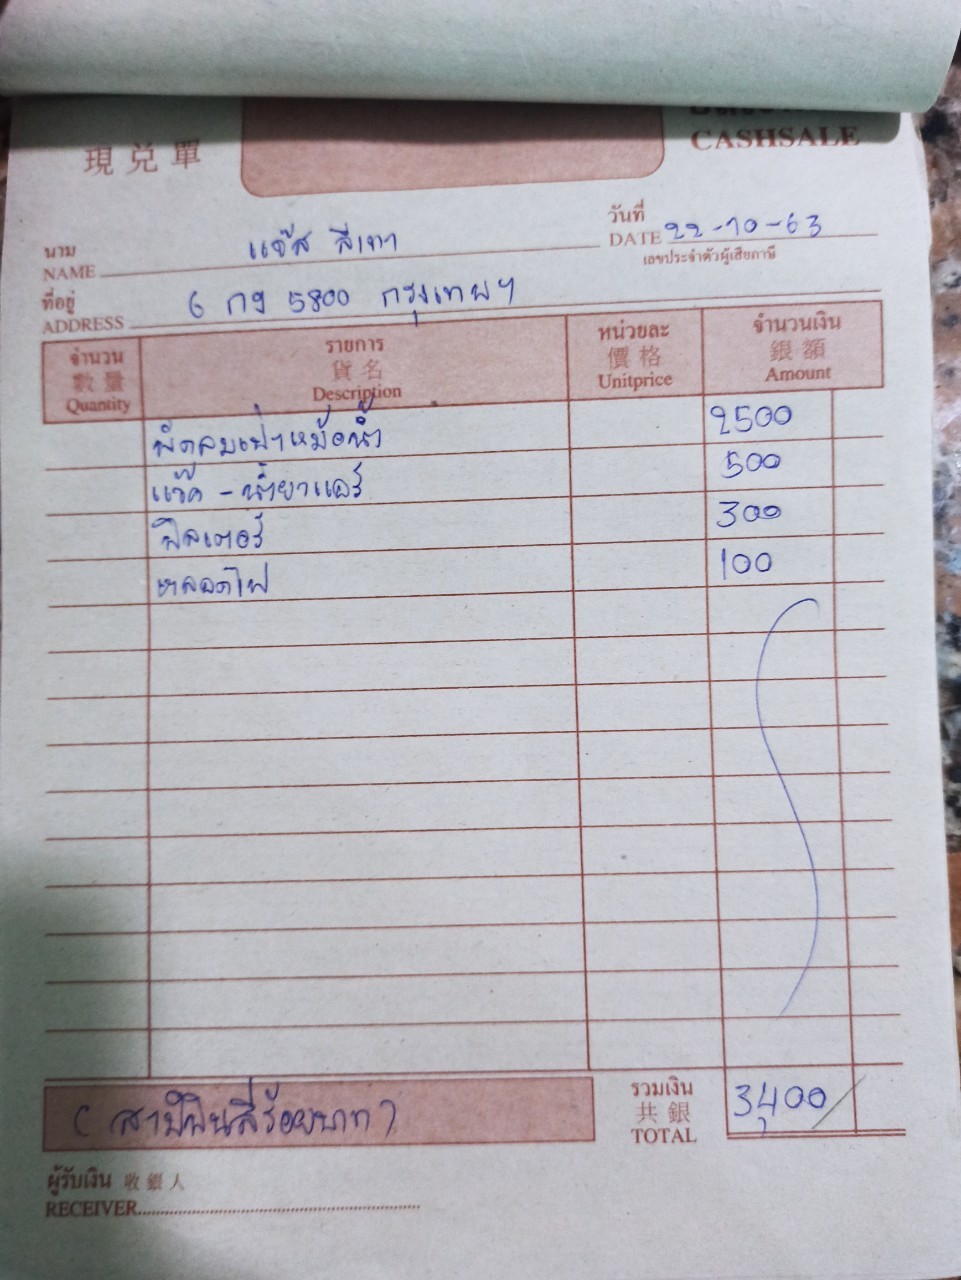 現兌單
CASHSALE
นาม
NAME แจ๊ส สีเทา
วันที่
DATE 22-10-63
เลขประจำตัวผู้เสียภาษี
ที่อยู่
ADDRESS 6 กง 5800 กรุงเทพฯ
จำนวน รายการ หน่วยละ จำนวนเงิน
數量 貨名 價格 銀額
Quantity Description Unitprice Amount
พัดลมเป่าหม้อน้ำ 2500
แว๊ค - น้ำยาแอร์ 500
ฟิลเตอร์ 300
หลอดไฟ 100
(สามพันสี่ร้อยบาท)
รวมเงิน
共銀
TOTAL 3,400
ผู้รับเงิน 收銀人
RECEIVER